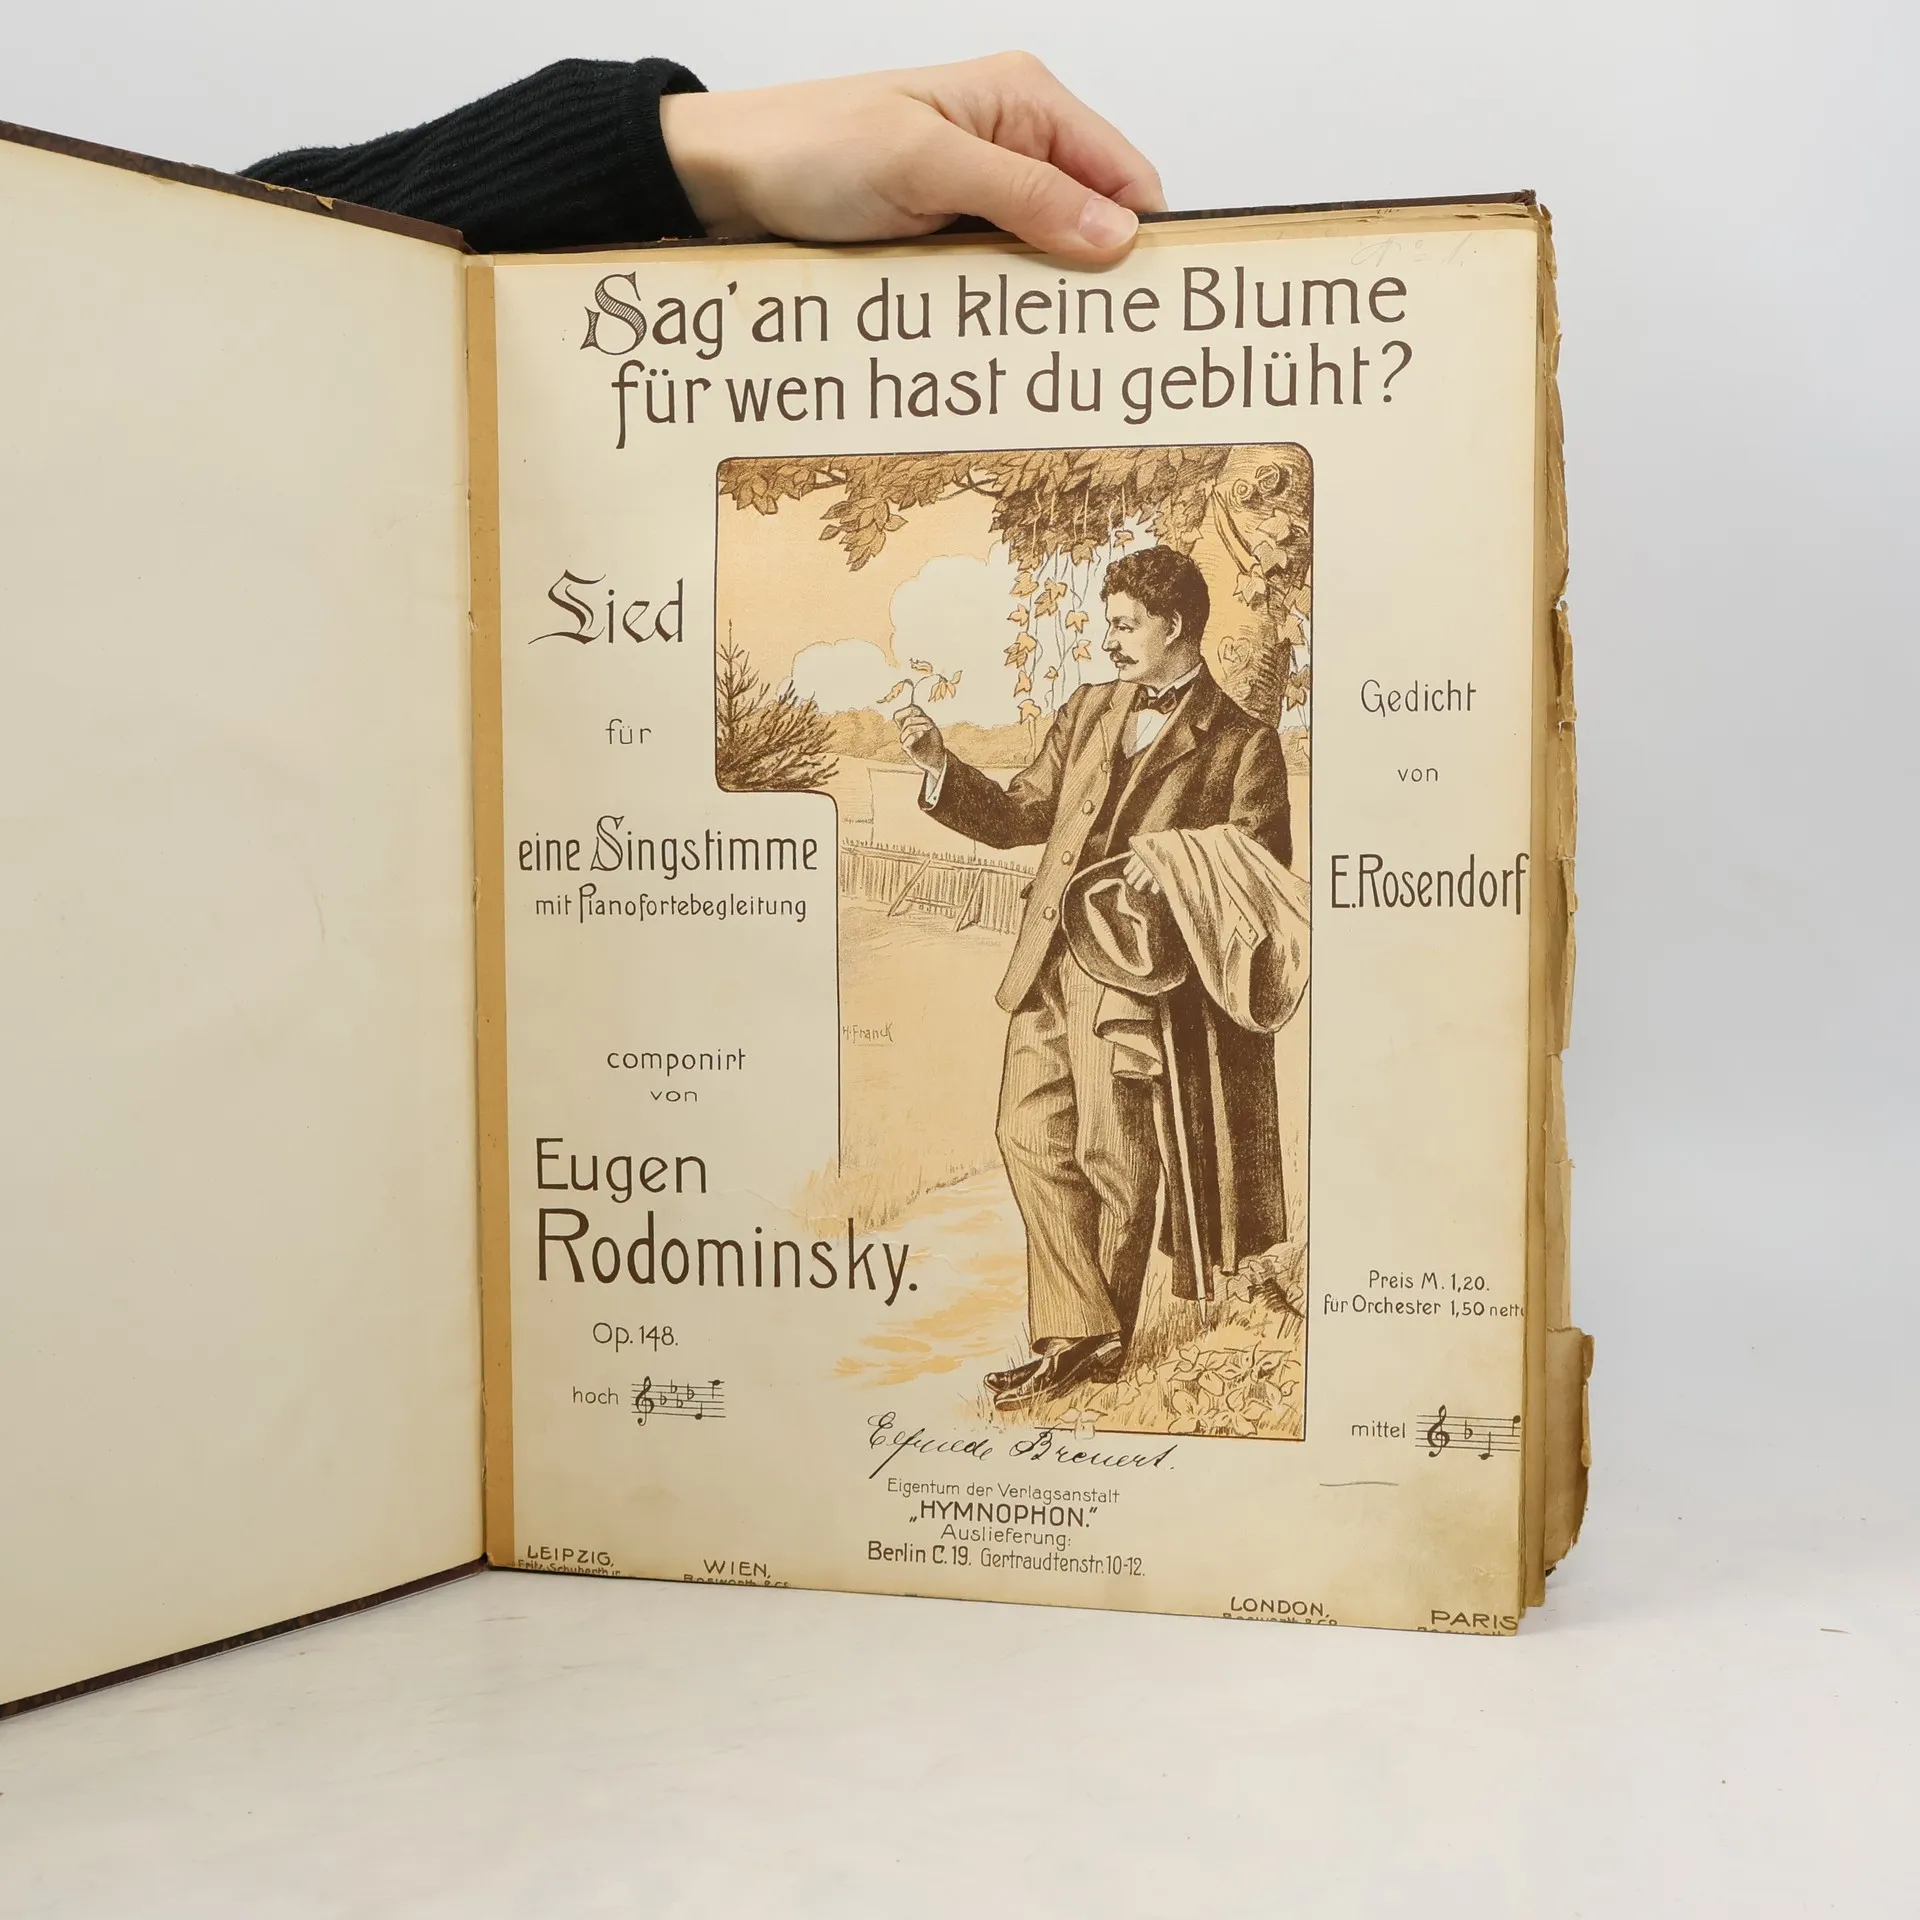 Sag' an du kleine Blume
für wen hast du geblüht?
Lied
für
eine Singstimme
mit Pianofortebegleitung
componirt
von
Eugen
Rodominsky.
Op. 148.
hoch
Gedicht
von
E. Rosendorf
H. Franck
Preis M. 1,20.
für Orchester 1,50 netto
mittel
Elfriede
Eigentum der Verlagsanstalt
„HYMNOPHON."
Auslieferung:
Berlin C. 19. Gertraudtenstr. 10-12.
LEIPZIG,
Fritz Schuberth jr.
WIEN,
Bosworth & Co.
LONDON,
Bosworth & Co.
PARIS
Bosworth